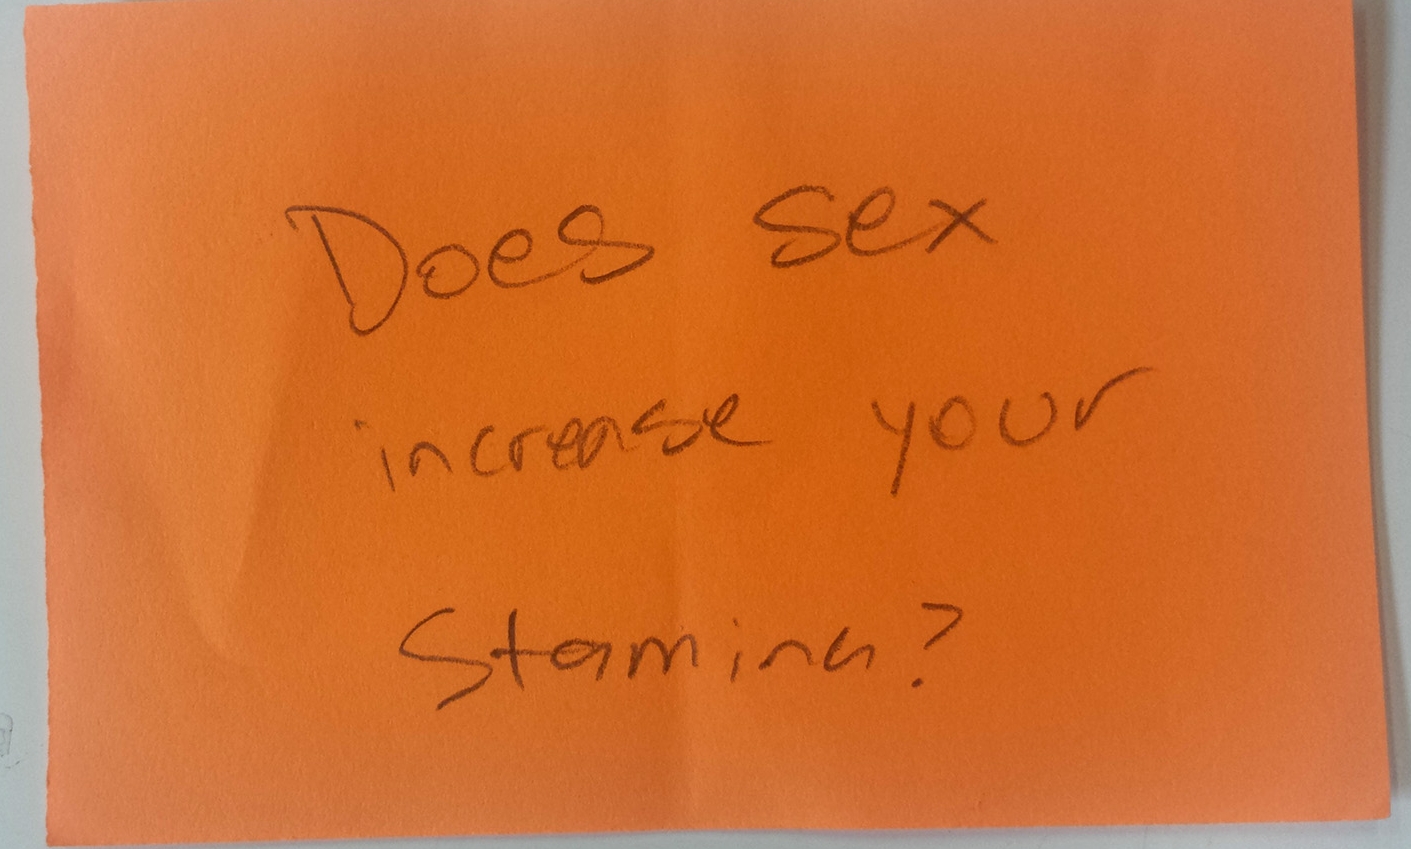 Does sex
increase your
Stamina?